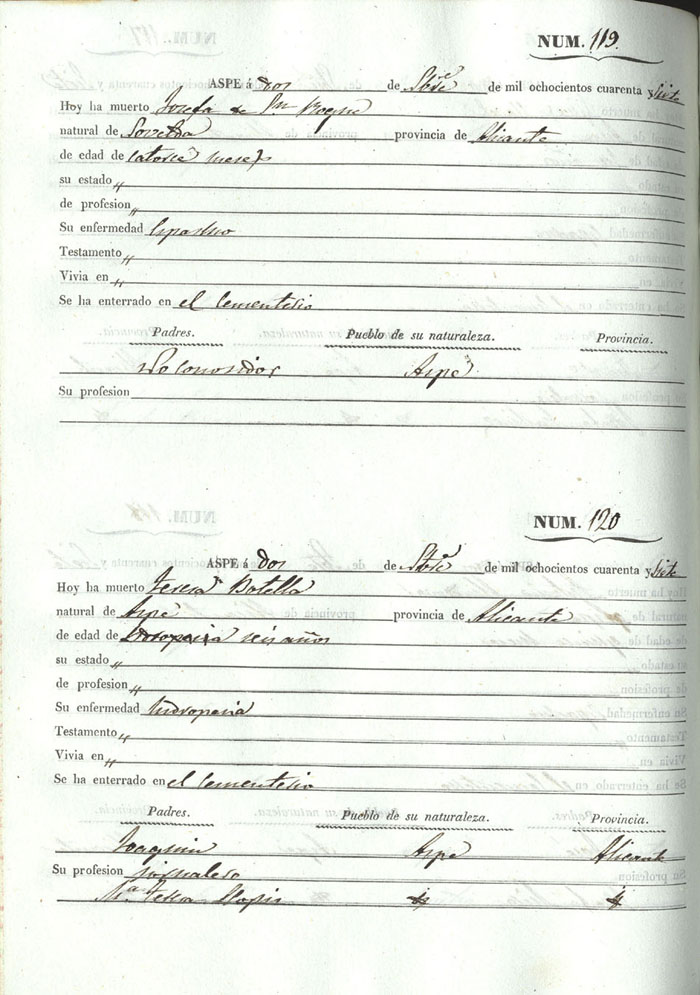 NUM. 119.
ASPE á dos de Sbre de mil ochocientos cuarenta y siete
Hoy ha muerto Josefa de Sn Roque
natural de provincia de Alicante
de edad de catorce meses
su estado „
de profesion „
Su enfermedad Espasmo
Testamento „
Vivia en „
Se ha enterrado en el Cementerio
Padres. Pueblo de su naturaleza. Provincia.
No conosidos Aspe
Su profesion
NUM. 120
ASPE á dos de Sbre de mil ochocientos cuarenta y siete
Hoy ha muerto Teresa Botella
natural de Aspe provincia de Alicante
de edad de seis años
su estado „
de profesion „
Su enfermedad hidropecia
Testamento „
Vivia en „
Se ha enterrado en el Cementerio
Padres. Pueblo de su naturaleza. Provincia.
Joaquin Aspe Alicante
Su profesion jornalero
Ma Teresa Llopis